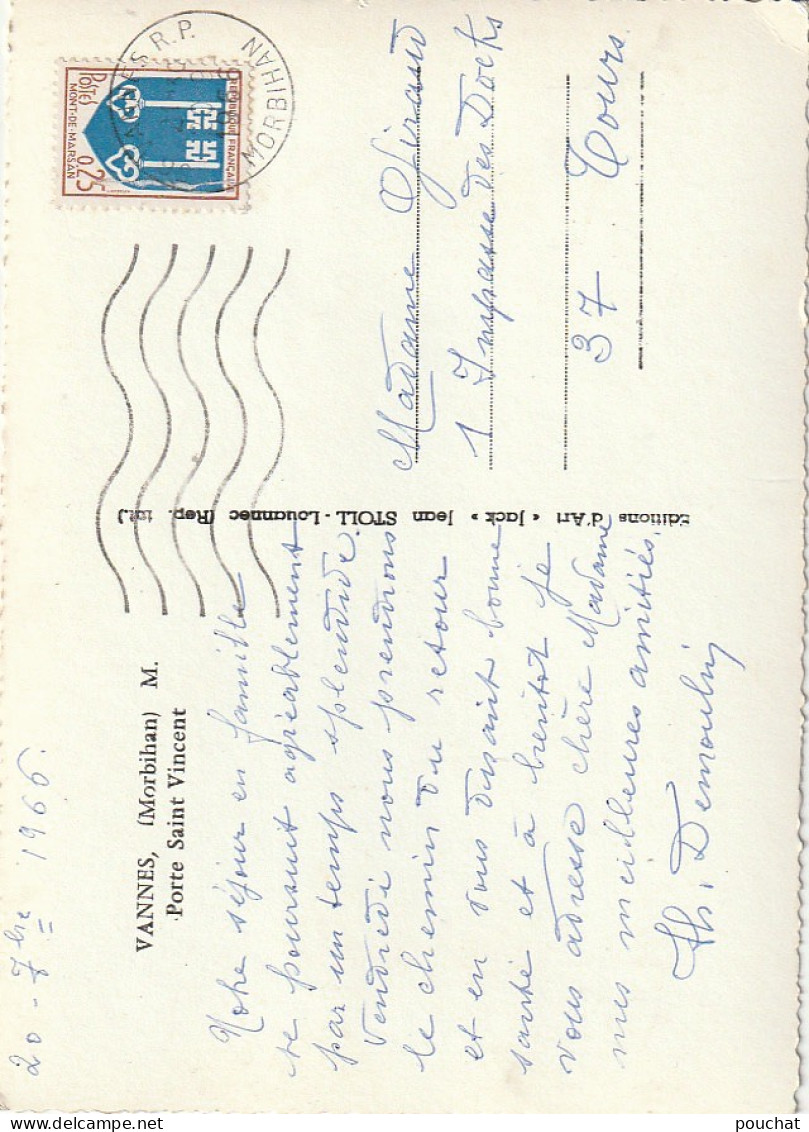 20 - 7bre 1966.
VANNES, (Morbihan) M.
Porte Saint Vincent
Notre séjour en famille
se poursuit agréablement
par un temps splendide.
Vendredi nous prendrons
le chemin du retour
et en vous disant bonne
santé et à bientôt je
vous adresse chère Madame
mes meilleures amitiés.
Th. Demoulin
Editions d'Art « Jack » Jean STOLL - Louannec (Rep. int.)
VANNES R.P.
MORBIHAN
REPUBLIQUE FRANÇAISE
POSTES
0,25
MONT-DE-MARSAN
Madame Giraud
1 Impasse des Docks
37 Tours
pouchat